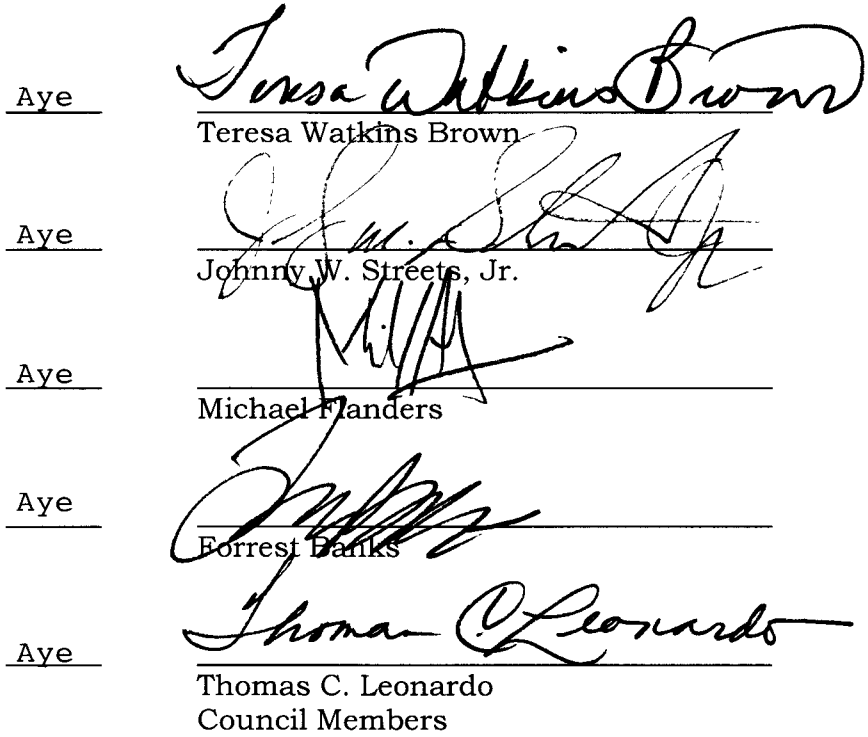 Aye Teresa Watkins Brown
Teresa Watkins Brown
Aye
Johnny W. Streets, Jr.
Aye
Michael Flanders
Aye
Forrest Banks
Aye Thomas C. Leonardo
Thomas C. Leonardo
Council Members